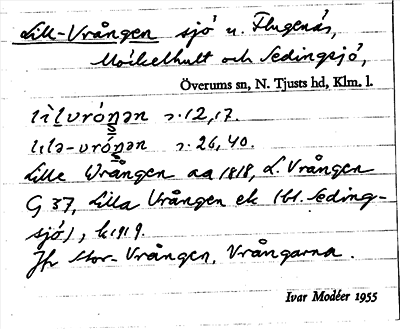 Lill-Vrången sjö u. Flugenäs,
Möckelhult och Sedingsjö,
Överums sn, N. Tjusts hd, Klm. l.
r. 12, 17.
r. 26, 40.
Lille Wrången aa 1818, L. Vrången
G 37, Lilla Vrången ek (bl. Seding-
sjö), k 1919.
Jfr Stor-Vrången, Vrångarna.
Ivar Modéer 1955